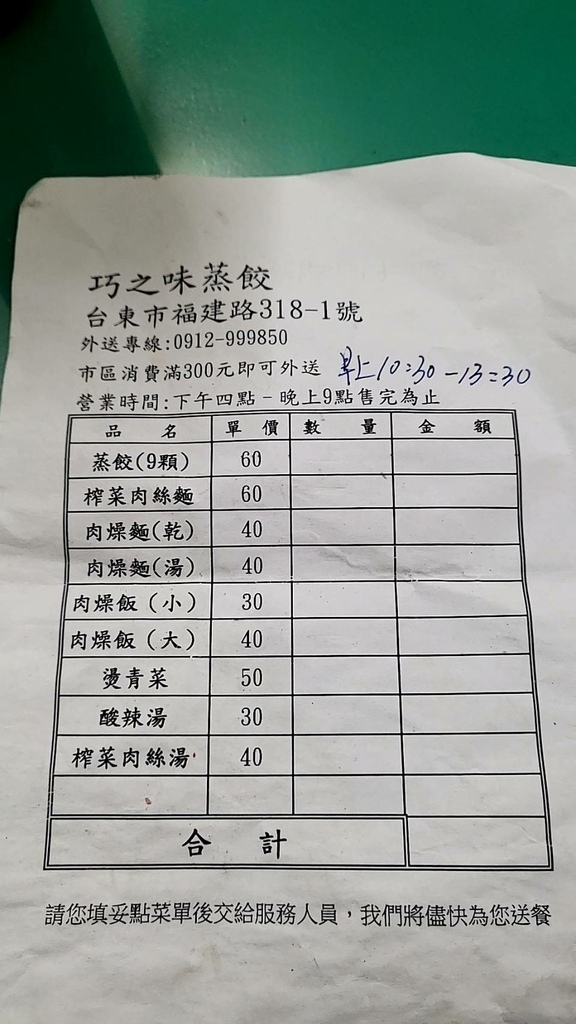 巧之味蒸餃
台東市福建路318-1號
外送專線:0912-999850
市區消費滿300元即可外送 早上10:30-13:30
營業時間:下午四點-晚上9點售完為止
品名 單價 數量 金額
蒸餃(9顆) 60
榨菜肉絲麵 60
肉燥麵(乾) 40
肉燥麵(湯) 40
肉燥飯(小) 30
肉燥飯(大) 40
燙青菜 50
酸辣湯 30
榨菜肉絲湯 40
合計
請您填妥點菜單後交給服務人員,我們將儘快為您送餐